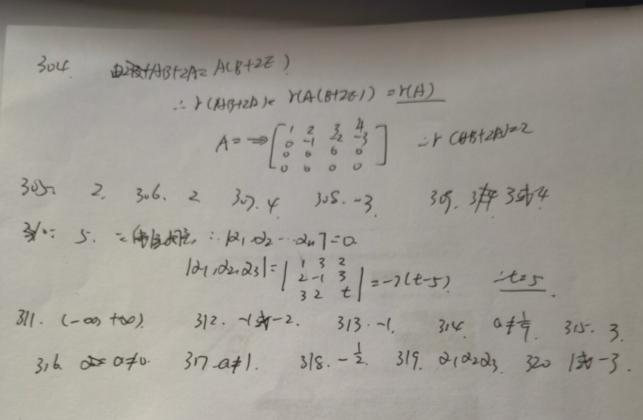 304. AB+2A=A(B+2E)
∴ r(AB+2A)= r(A(B+2E)) =r(A)
A= ⇒ [1 2 3 4
0 -1 -2 -3
0 0 0 0
0 0 0 0] ∴ r(AB+2A)=2
305. 2. 306. 2 307. 4 308. -3 309. 3或4
310: 5. ∴ |α1,α2…αn|=0.
|α1,α2,α3|= |1 3 2
2 -1 3
3 2 t| =-7(t-5) ∴t=5
311. (-∞,+∞). 312. -1或-2. 313. -1. 314. a≠1/9. 315. 3.
316. a≠0. 317. a≠1. 318. -1/2. 319. α1α2α3 320 1或-3.